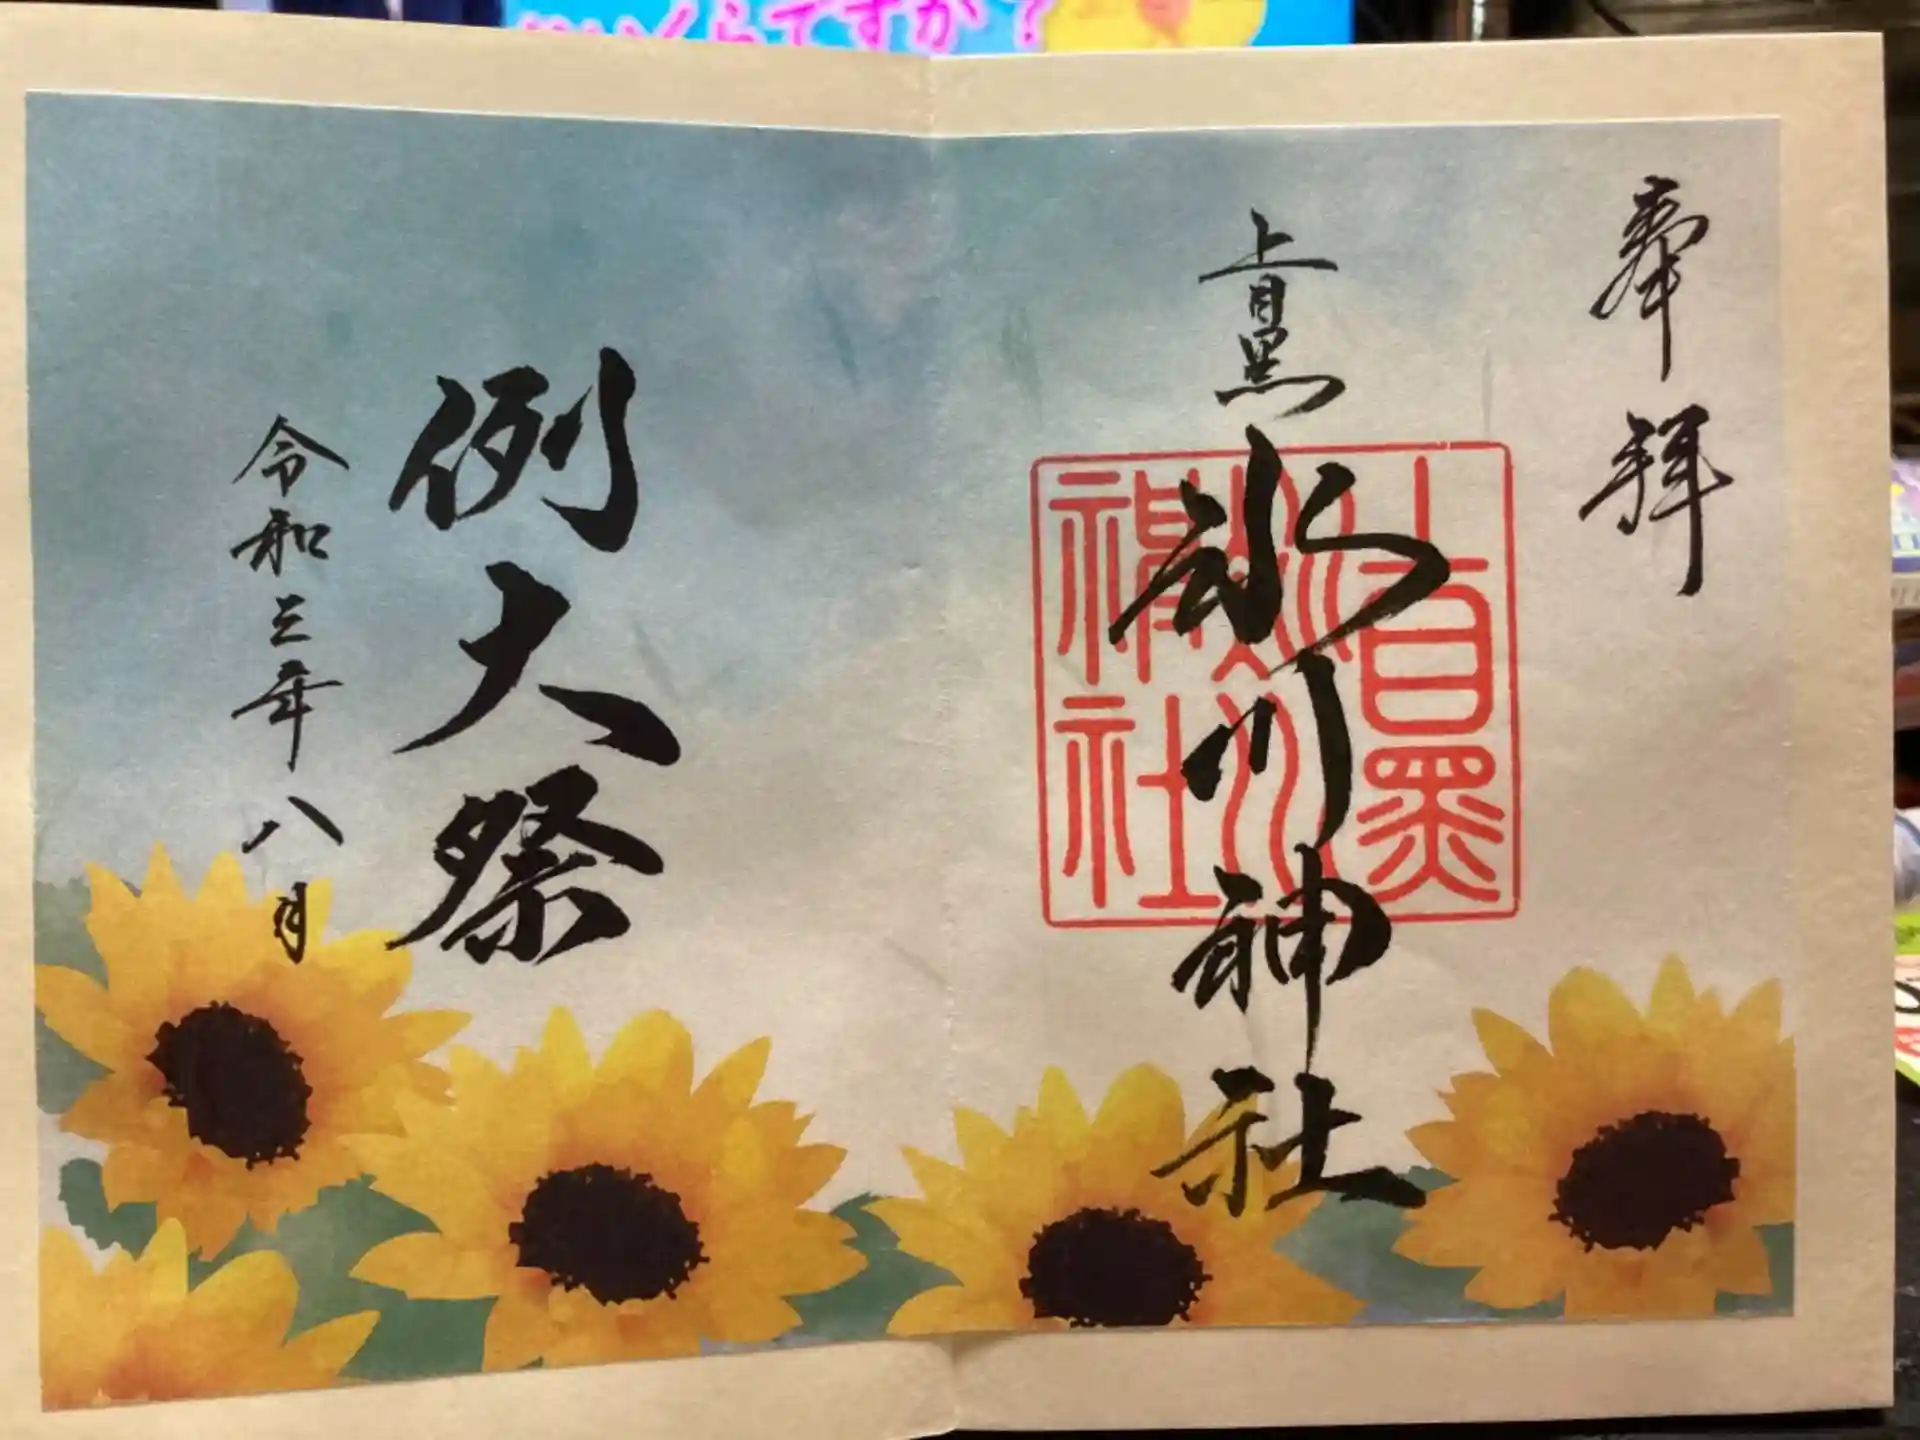 奉拝
上目黒
氷川神社
上目黒氷川神社
例大祭
令和三年八月
くらですか?